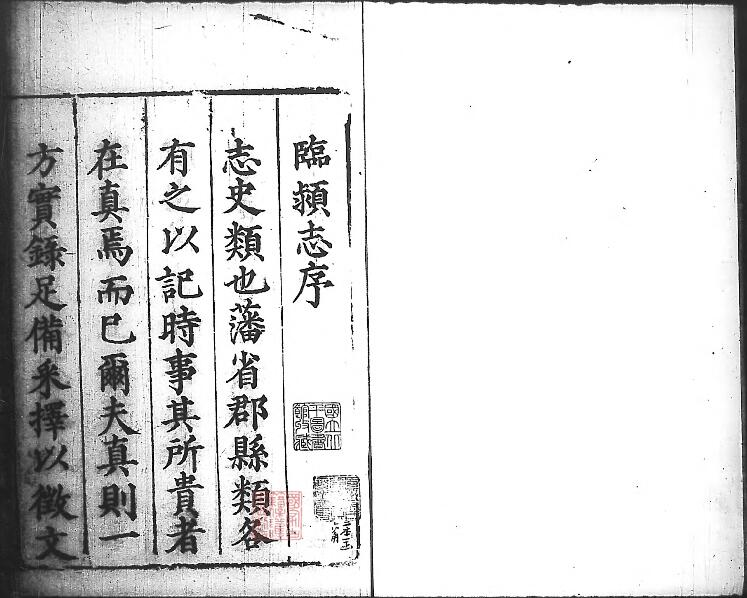 臨潁志序
志史類也藩省郡縣類各
有之以記時事其所貴者
在真焉而已爾夫真則一
方實錄足備采擇以徵文